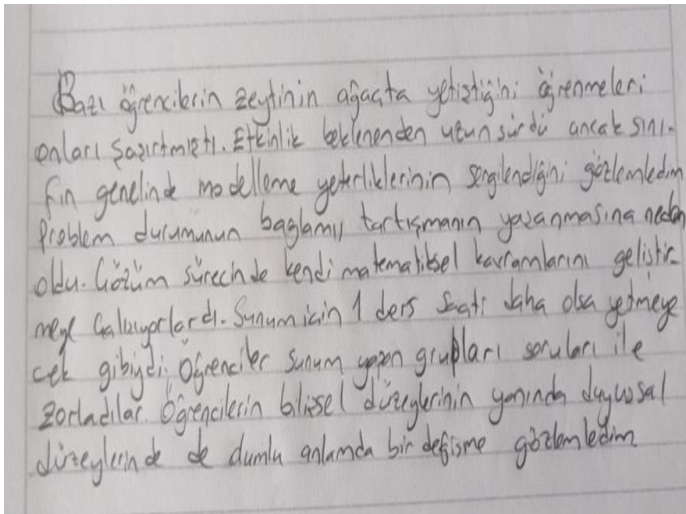 Bazı öğrencilerin zeytinin ağaçta yetiştiğini öğrenmeleri
onları şaşırtmıştı. Etkinlik beklenenden uzun sürdü ancak sını-
fın genelinde modelleme yeterliklerinin sergilendiğini gözlemledim
Problem durumunun bağlamı, tartışmanın yaşanmasına neden
oldu. Çözüm sürecinde kendi matematiksel kavramlarını geliştir-
meye çalışıyorlardı. Sunum için 1 ders saati daha olsa yetmeye
cek gibiydi. Öğrenciler sunum yapan grupları soruları ile
zorladılar. Öğrencilerin bilişsel düzeylerinin yanında duyuşsal
düzeylerinde de dumlu anlamda bir değişme gözlemledim